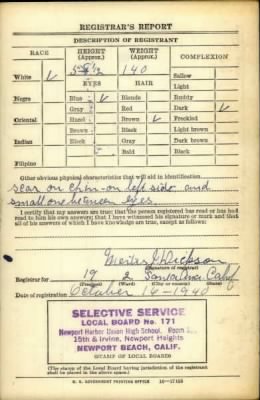 REGISTRAR'S REPORT
DESCRIPTION OF REGISTRANT
RACE HEIGHT (Approx.) WEIGHT (Approx.) COMPLEXION
White ✓ 5 140 Sallow
EYES HAIR Light
Negro Blue ✓ Blonde Ruddy
Gray Red Dark ✓
Oriental Hazel Brown ✓ Freckled
Brown Black Light brown
Indian Black Gray Dark brown
Bald Black
Filipino
Other obvious physical characteristics that will aid in identification
scar on chin - on left side and
small one between eyes.
I certify that my answers are true; that the person registered has read or has had
read to him his own answers; that I have witnessed his signature or mark and that
all of his answers of which I have knowledge are true, except as follows:
Dickson
(Signature of registrar)
Registrar for 19 2 Santa Ana Calif
(Precinct) (Ward) (City or county) (State)
Date of registration October 16 - 1940
SELECTIVE SERVICE
LOCAL BOARD No. 171
Newport Harbor Union High School. Room
15th & Irvine, Newport Heights
NEWPORT BEACH, CALIF.
(STAMP OF LOCAL BOARD)
(The stamp of the Local Board having jurisdiction of the registrant
shall be placed in the above space.)
U. S. GOVERNMENT PRINTING OFFICE 16—17105